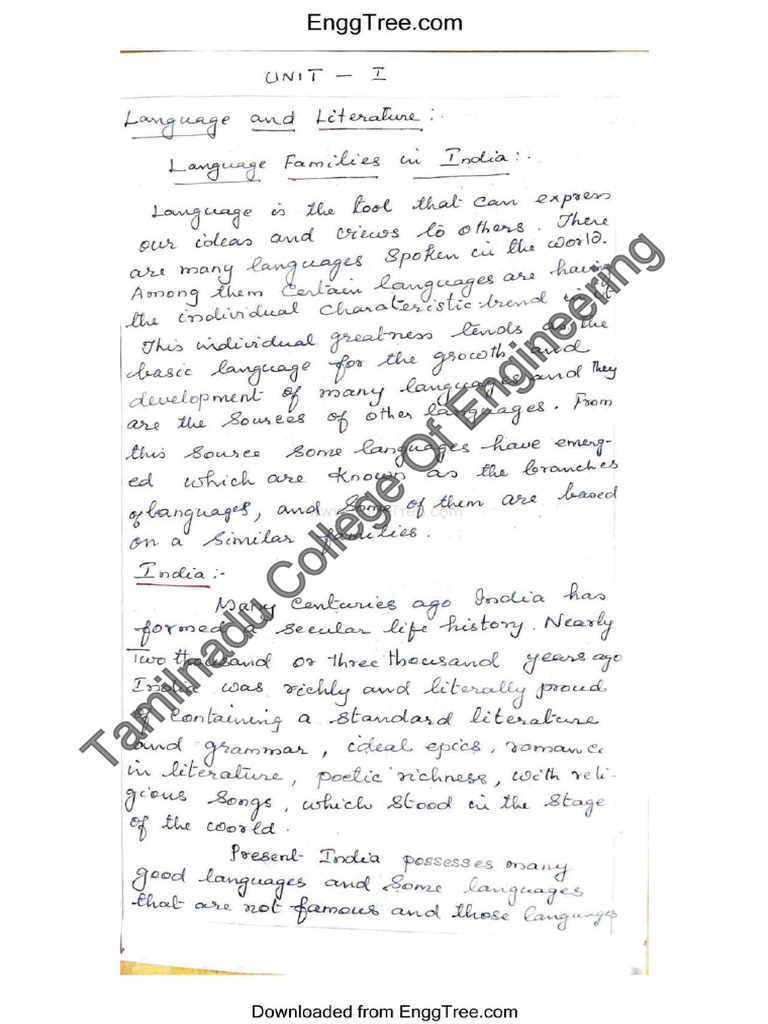 EnggTree.com
UNIT - I
Language and Literature:-
Language Families in India:-
Language is the tool that can express
our ideas and views to others. There
are many languages spoken in the world.
Among them certain languages are having
the individual charateristic trend
This individual greatness tends as the
basic language for the growth and
development of many language and they
are the sources of other languages. From
this source some languages have emerg-
ed which are known as the branches
of languages, and some of them are based
on a similar families.
India:-
Many centuries ago India has
formed a secular life history. Nearly
Two thousand or three thousand years ago
India was richly and literally proud
of containing a standard literature
and grammar, ideal epics, romance
in literature, poetic richness, with reli-
gious songs, which stood in the stage
of the world.
Present India possesses many
good languages and some languages
that are not famous and those languages
Tamilnadu College Of Engineering
www.EnggTree.com
Downloaded from EnggTree.com